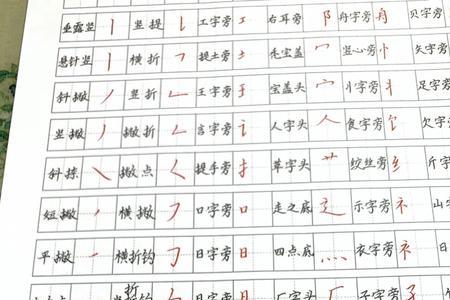 垂露竖 丨 竖提 工字旁 工 右耳旁 阝 舟字旁 舟 贝字旁
悬针竖 丨 横折 ㇇ 提土旁 土 秃宝盖 冖 竖心旁 忄 矢字旁
斜撇 丿 竖折 ㇗ 王字旁 王 宝盖头 宀 丬字旁 丬 足字旁
竖撇 丿 撇折 ㇜ 言字旁 讠 人字头 人 食字旁 饣 欠字旁
斜捺 ㇏ 撇点 ㇛ 提手旁 扌 草字头 艹 绞丝旁 纟 斤字
短撇 ㇒ 横撇 ㇇ 口字旁 口 走之底 辶 示字旁 礻 山字
平撇 ㇒ 横折钩 ㇆ 日字旁 日 四点底 灬 衣字旁 衤 日字
折 日字旁 日 厂字头 厂 子字旁 子